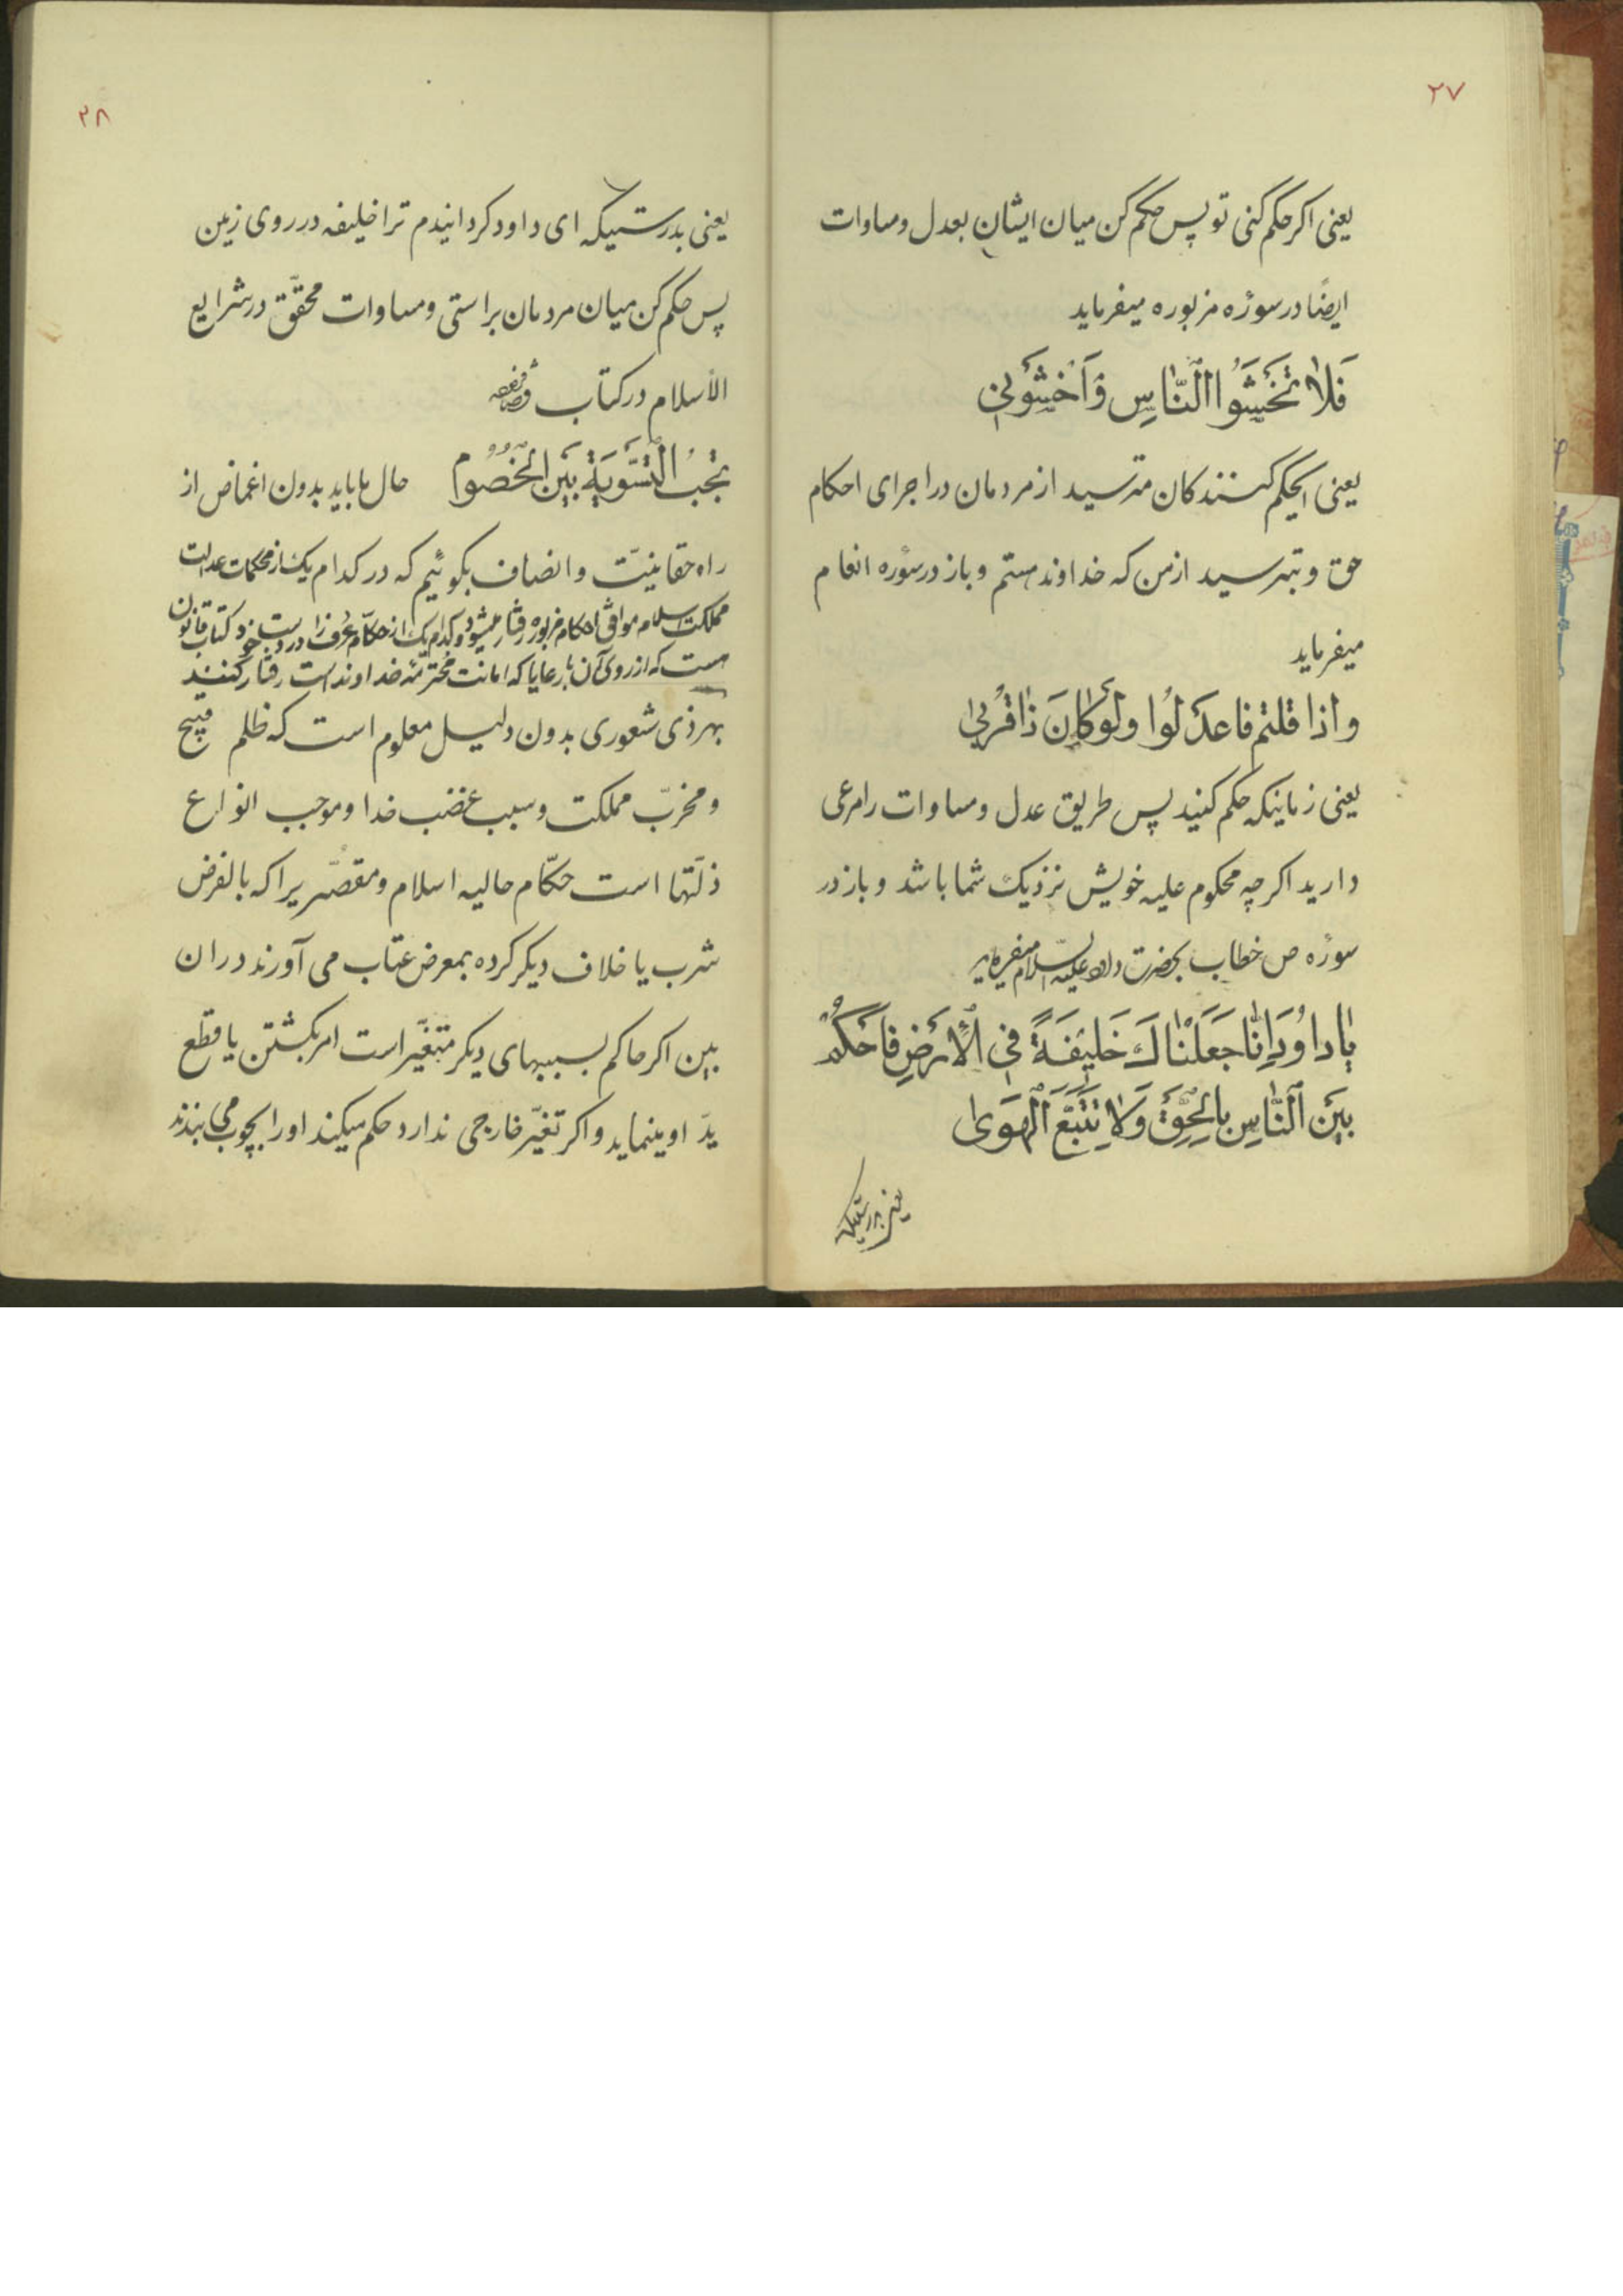 ۲۷
یعنی اکر حکم کنی تو پس حکم کن میان ایشان بعدل و مساوات
ایضًا در سورٔه مزبوره میفرماید
فَلاٰ تَخْشَوُا النّٰاسِ وَاَخْشَوْنِ
یعنی ایحکم کنندکان مترسید از مردمان در اجرای احکام
حق و بترسید از من که خداوند هستم و باز در سورٔه انعام
میفرماید
واذا قلتم فاعدَلُوا ولَوْ کٰانَ ذٰاقُربیٰ
یعنی زمانیکه حکم کنید پس طریق عدل و مساوات را مرعی
دارید اکرچه محکوم علیه خویش نزدیک شما باشد و باز در
سورٔه ص خطاب بحضرت داود علیه السلام میفرماید
یٰا داوُدَ اِنّٰا جَعَلْنٰاكَ خَلیفَةً فیِ الْأَرَضِ فَاحَکُمْ
بَیَنَ الَنّٰاسِ بِالْحِقَّ وَلاٰ تَتَّبَعَ الْهَویٰ
یعنی بدرستیکه
۲۸
یعنی بدرستیکه ای داود کردانیدم ترا خلیفه در روی زمین
پس حکم کن میان مردمان براستی و مساوات محقّق در شرایع
الأسلام در کتاب قضا
تجبُ التَسَّوَیَة بَیَن الخُصُوُم حال ما باید بدون اغماض از
راه حقانیّت و انصاف بکوئیم که در کدام یک از محکمات عدالت
مملکت اسلام موافق احکام مزبوره رفتار میشود و کدام یک از حکّام عُرف را در دست خود کتاب قانون
هست که از روی آن با رعایا که امانت محترمّه خداوند است رفتار کنند
بهر ذی شعوری بدون دلیل معلوم است که ظلم قبیح
و مخرّب مملکت و سبب غضب خدا و موجب انواع
ذلّتها است حکّام حالیه اسلام و مقصّریرا که بالفرض
شرب یا خلاف دیکر کرده بمعرض عتاب می آورند در ان
بین اکر حاکم بسببهای دیکر متغیّر است امر بکشتن یا قطع
یدّ او مینماید و اکر تغیّر خارجی ندارد حکم میکند او را بچوب می بندند